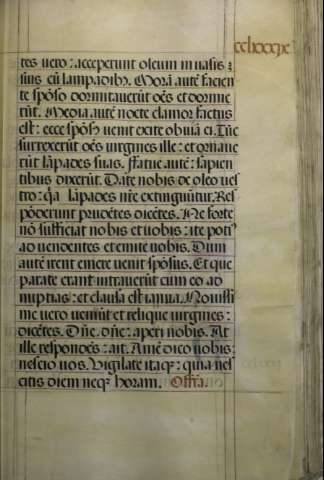 cclxxxix
tes vero: acceperunt oleum in uasis
suis cū lampadibꝫ. Morā autē facien
te spōso dormitauerūt oēs et dormie
rūt. Media autē nocte clamor factus
est: ecce spōsꝰ uenit exite obuiā ei. Tūc
surrexerūt oēs uirgines ille: et ornaue
rūt lāpades suas. Fatue autē: sapien
tibus dixerūt. Date nobis de oleo ues
tro: qa lāpades nr̄e extinguūtur. Res
pōderunt prudētes dicētes. Ne forte
nō sufficiat nobis et uobis: ite potiꝰ
ad uendentes et emite uobis. Dum
autē irent emere uenit spōsus. Et que
parate erant intrauerūt cum eo ad
nuptias: et clausa est ianua. Nouissi
me uero ueniūt et relique uirgines:
dicētes. Dn̄e. dn̄e: aperi nobis. At
ille respondēs: ait. Amē dico uobis:
nescio uos. Vigilate itaqꝫ: quia nes
citis diem neqꝫ horam. Offꝫa.